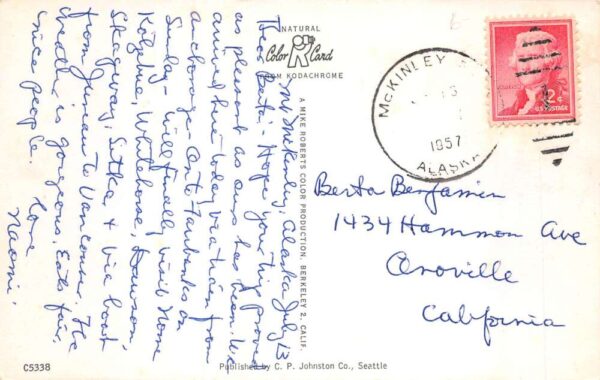 Mt. McKinley, Alaska July 13
Dear Berta - Hope your trip proved
as pleasant as ours has been. We
arrived here today via train from
Anchorage. On to Fairbanks on
Sunday - will finally visit Nome
Kotzebue, Whitehorse, Dawson,
Skagway, Sitka & via boat
from Juneau to Vancouver. The
weather is gorgeous. Eats fair,
nice people. Love
Naomi.
NATURAL
Color Card
FROM KODACHROME
A MIKE ROBERTS COLOR PRODUCTION, BERKELEY 2, CALIF.
McKINLEY
1957
ALASKA
2¢
U.S. POSTAGE
Berta Benjamin
1434 Hammon Ave
Oroville
California
C5338
Published by C. P. Johnston Co., Seattle